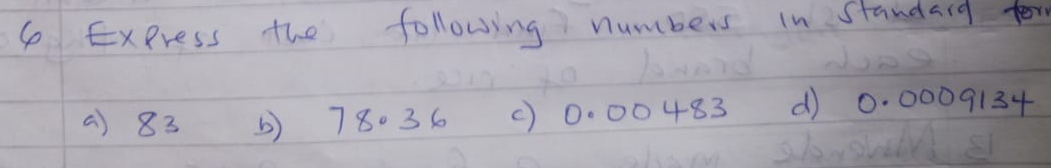 6 Express the following numbers in standard form
a) 83 b) 78.36 c) 0.00483 d) 0.0009134